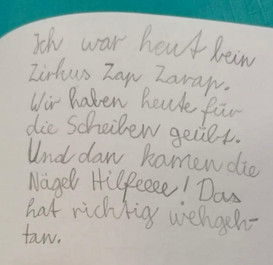 Ich war heut bein
Zirkus Zap Zarap.
Wir haben heute für
die Scheiben geübt.
Und dan kamen die
Nägel Hilfeeee! Das
hat richtig wehgeh-
tan.